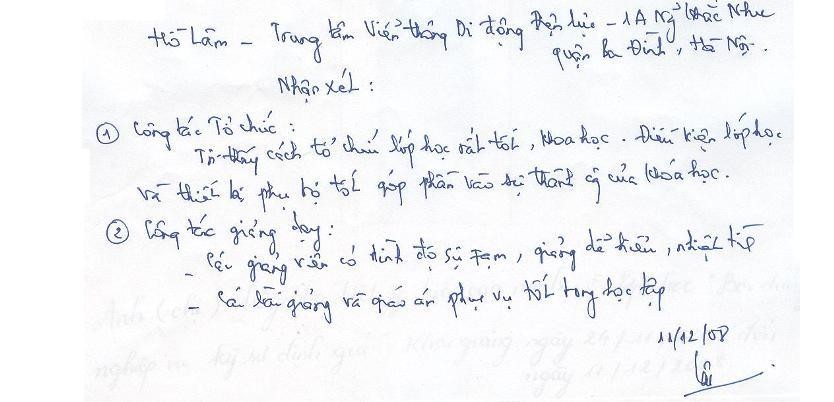 Hồ Lâm – Trung tâm Viễn thông Di động Điện lực – 1A Ngũ Khắc Nhu
quận Ba Đình, Hà Nội.
Nhận xét:
① Công tác Tổ chức:
Tôi thấy cách tổ chức lớp học rất tốt, khoa học. Điều kiện lớp học
và thiết bị phụ trợ tốt góp phần vào sự thành cg của khóa học.
② Công tác giảng dạy:
- Các giảng viên có trình độ sư phạm, giảng dễ hiểu, nhiệt tình
- Các bài giảng và giáo án phục vụ tốt trong học tập
11/12/08